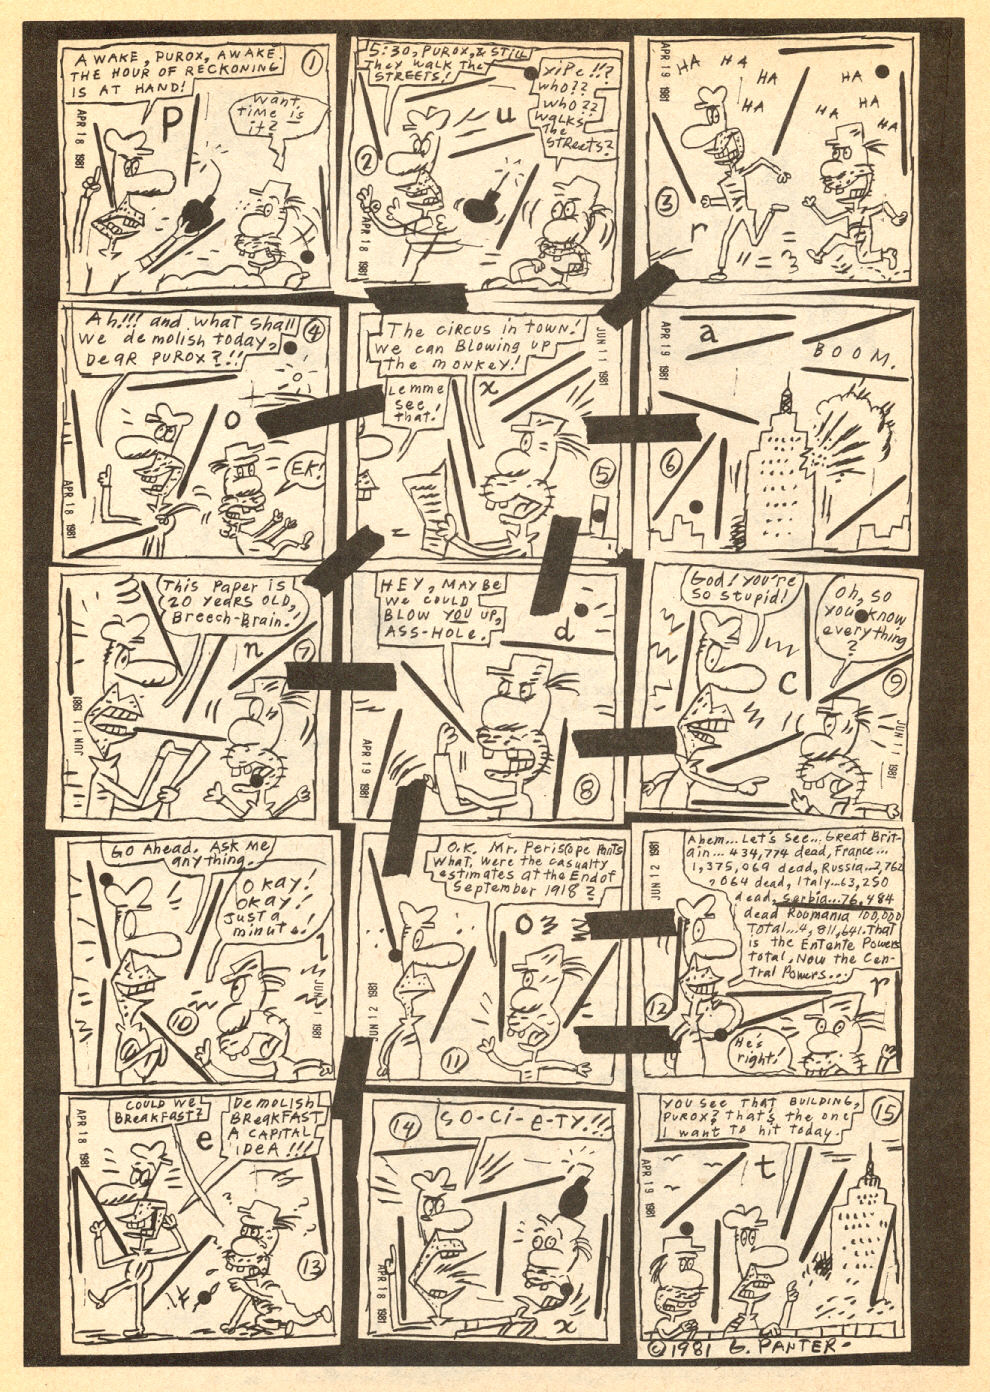 AWAKE, PUROX, AWAKE!
THE HOUR OF RECKONING
IS AT HAND!
1
P
Want
time is
it?
APR 18 1981
5:30, PUROX, & STILL
They walk the
STREETS!
u
YiPe!!?
who??
who??
walks
The
STReets?
2
APR 18 1981
APR 19 1981
HA HA
HA
HA
HA
HA
HA
HA
3
r
Ah!!! and what shall
we demolish today,
Dear PUROX?!!
4
o
EK!
APR 18 1981
The circus in town!
we can Blowing up
the monkey!
Lemme
see
that!
x
JUN 11 1981
5
APR 19 1981
a
BOOM.
6
This Paper is
20 years OLD,
Breech-Brain!
n
7
JUN 11 1981
HEY, MAYBE
we COULD
BLOW YOU UP,
ASS-HOLE.
d
APR 19 1981
8
God! you're
so stupid!
Oh, so
you know
everything
?
c
9
JUN 11 1981
GO Ahead. Ask Me
anything.
Okay!
Okay!
Just a
minute!
10
JUN 11 1981
O.K. Mr. Periscope Pants
What, were the casualty
estimates at the End of
September 1918?
o
JUN 12 1981
11
JUN 12 1981
Ahem... Let's see... Great Brit-
ain... 434,774 dead, France...
1,375,069 dead, Russia...2,762
,064 dead, Italy...63,250
dead, Serbia...76,484
dead Roumania 100,000
Total...4,811,641. That
is the Entente Powers
total, Now the Cen-
tral Powers...
12
r
He's
right!
COULD WE
BREAKFAST?
DEMOLISH
BREAKFAST
A CAPITAL
IDEA!!!
e
APR 18 1981
13
14
SO-Ci-e-TY!!!
APR 18 1981
x
YOU SEE THAT BUILDING,
PUROX? that's the one
I want to hit today.
15
t
APR 19 1981
©1981 G. PANTER.